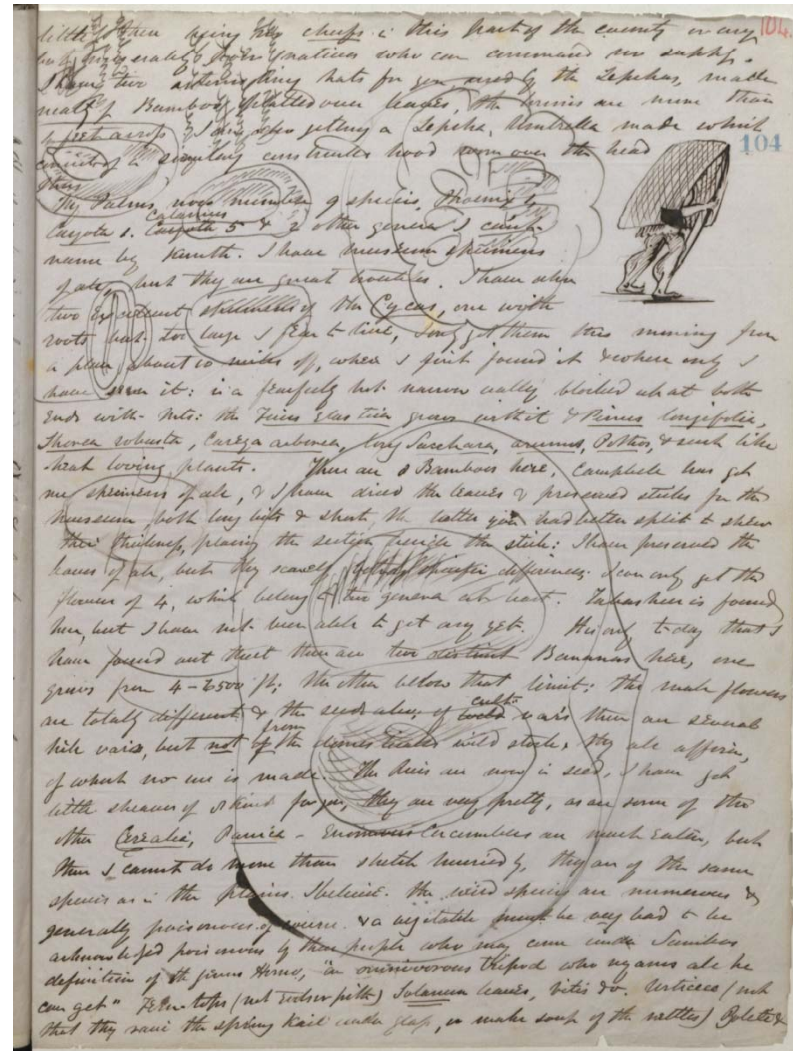 little of them being
104
I have two
hats for you used by the Lepchas, made
neatly of Bamboo platted over leaves, the brims are more than
feet across. I am also getting a Lepcha Umbrella made which
consists of a singular constructed hood worn over the head
104
thus
My Palms, now number 9 species, Phoenix 1,
Calamus
Caryota 1. Caryota 5 & 2 other genera I cannot
name by Kunth. I have museum specimens
of all, but they are great troubles. I have also
two Excellent specimens of the Cycas, one with
roots but too large I fear to live, I only got them this morning from
a place about 10 miles off, where I first found it & where only I
have seen it: in a fearfully hot narrow valley blocked up at both
Ends with the Ficus elastica grows with it & Pinus longifolia,
Shorea robusta, Careya arborea, Saccharum, arums, Pothos, & such like
heat loving plants. There are 8 Bamboos here, Campbell has got
me specimens of all, & I have dried the leaves & preserved sticks for the
Museum, both long bits & short, the latter you had better split to shew
their thickness, placing the section beside the stick: I have preserved the
leaves of all, but they scarcely specific differences. I can only get the
flowers of 4, which belong to two genera at least. Tabasheer is found
here, but I have not been able to get any yet. It is only to-day that I
have found out that there are two distinct Bananas here, one
grows from 4-6500 ft; the other below that limit: the male flowers
are totally different & the seeds also; of
cultd
wild vars there are several
from
hill vars, but not of the domesticated wild stock, they all
of which no use is made. The Rices are now in seed, I have got
little sheaves of 8 kinds for you, they are very pretty, as are some of the
other Cerealia, Panica - Enormous Cucumbers are much Eaten, but
them I cannot do more than sketch hurriedly, they are of the same
species as in the plains I believe. The wild species are numerous &
generally poisonous of course & a vegetable must be very bad to be
acknowledged poisonous by these people who may come under
definition of the genus Homo, "an omnivorous tripod who all he
can get" Fern-tops (not pith) Solanum leaves, Vitis &c. Urticeae (not
that they raise the spring Kail under glass, or make soup of the nettles)